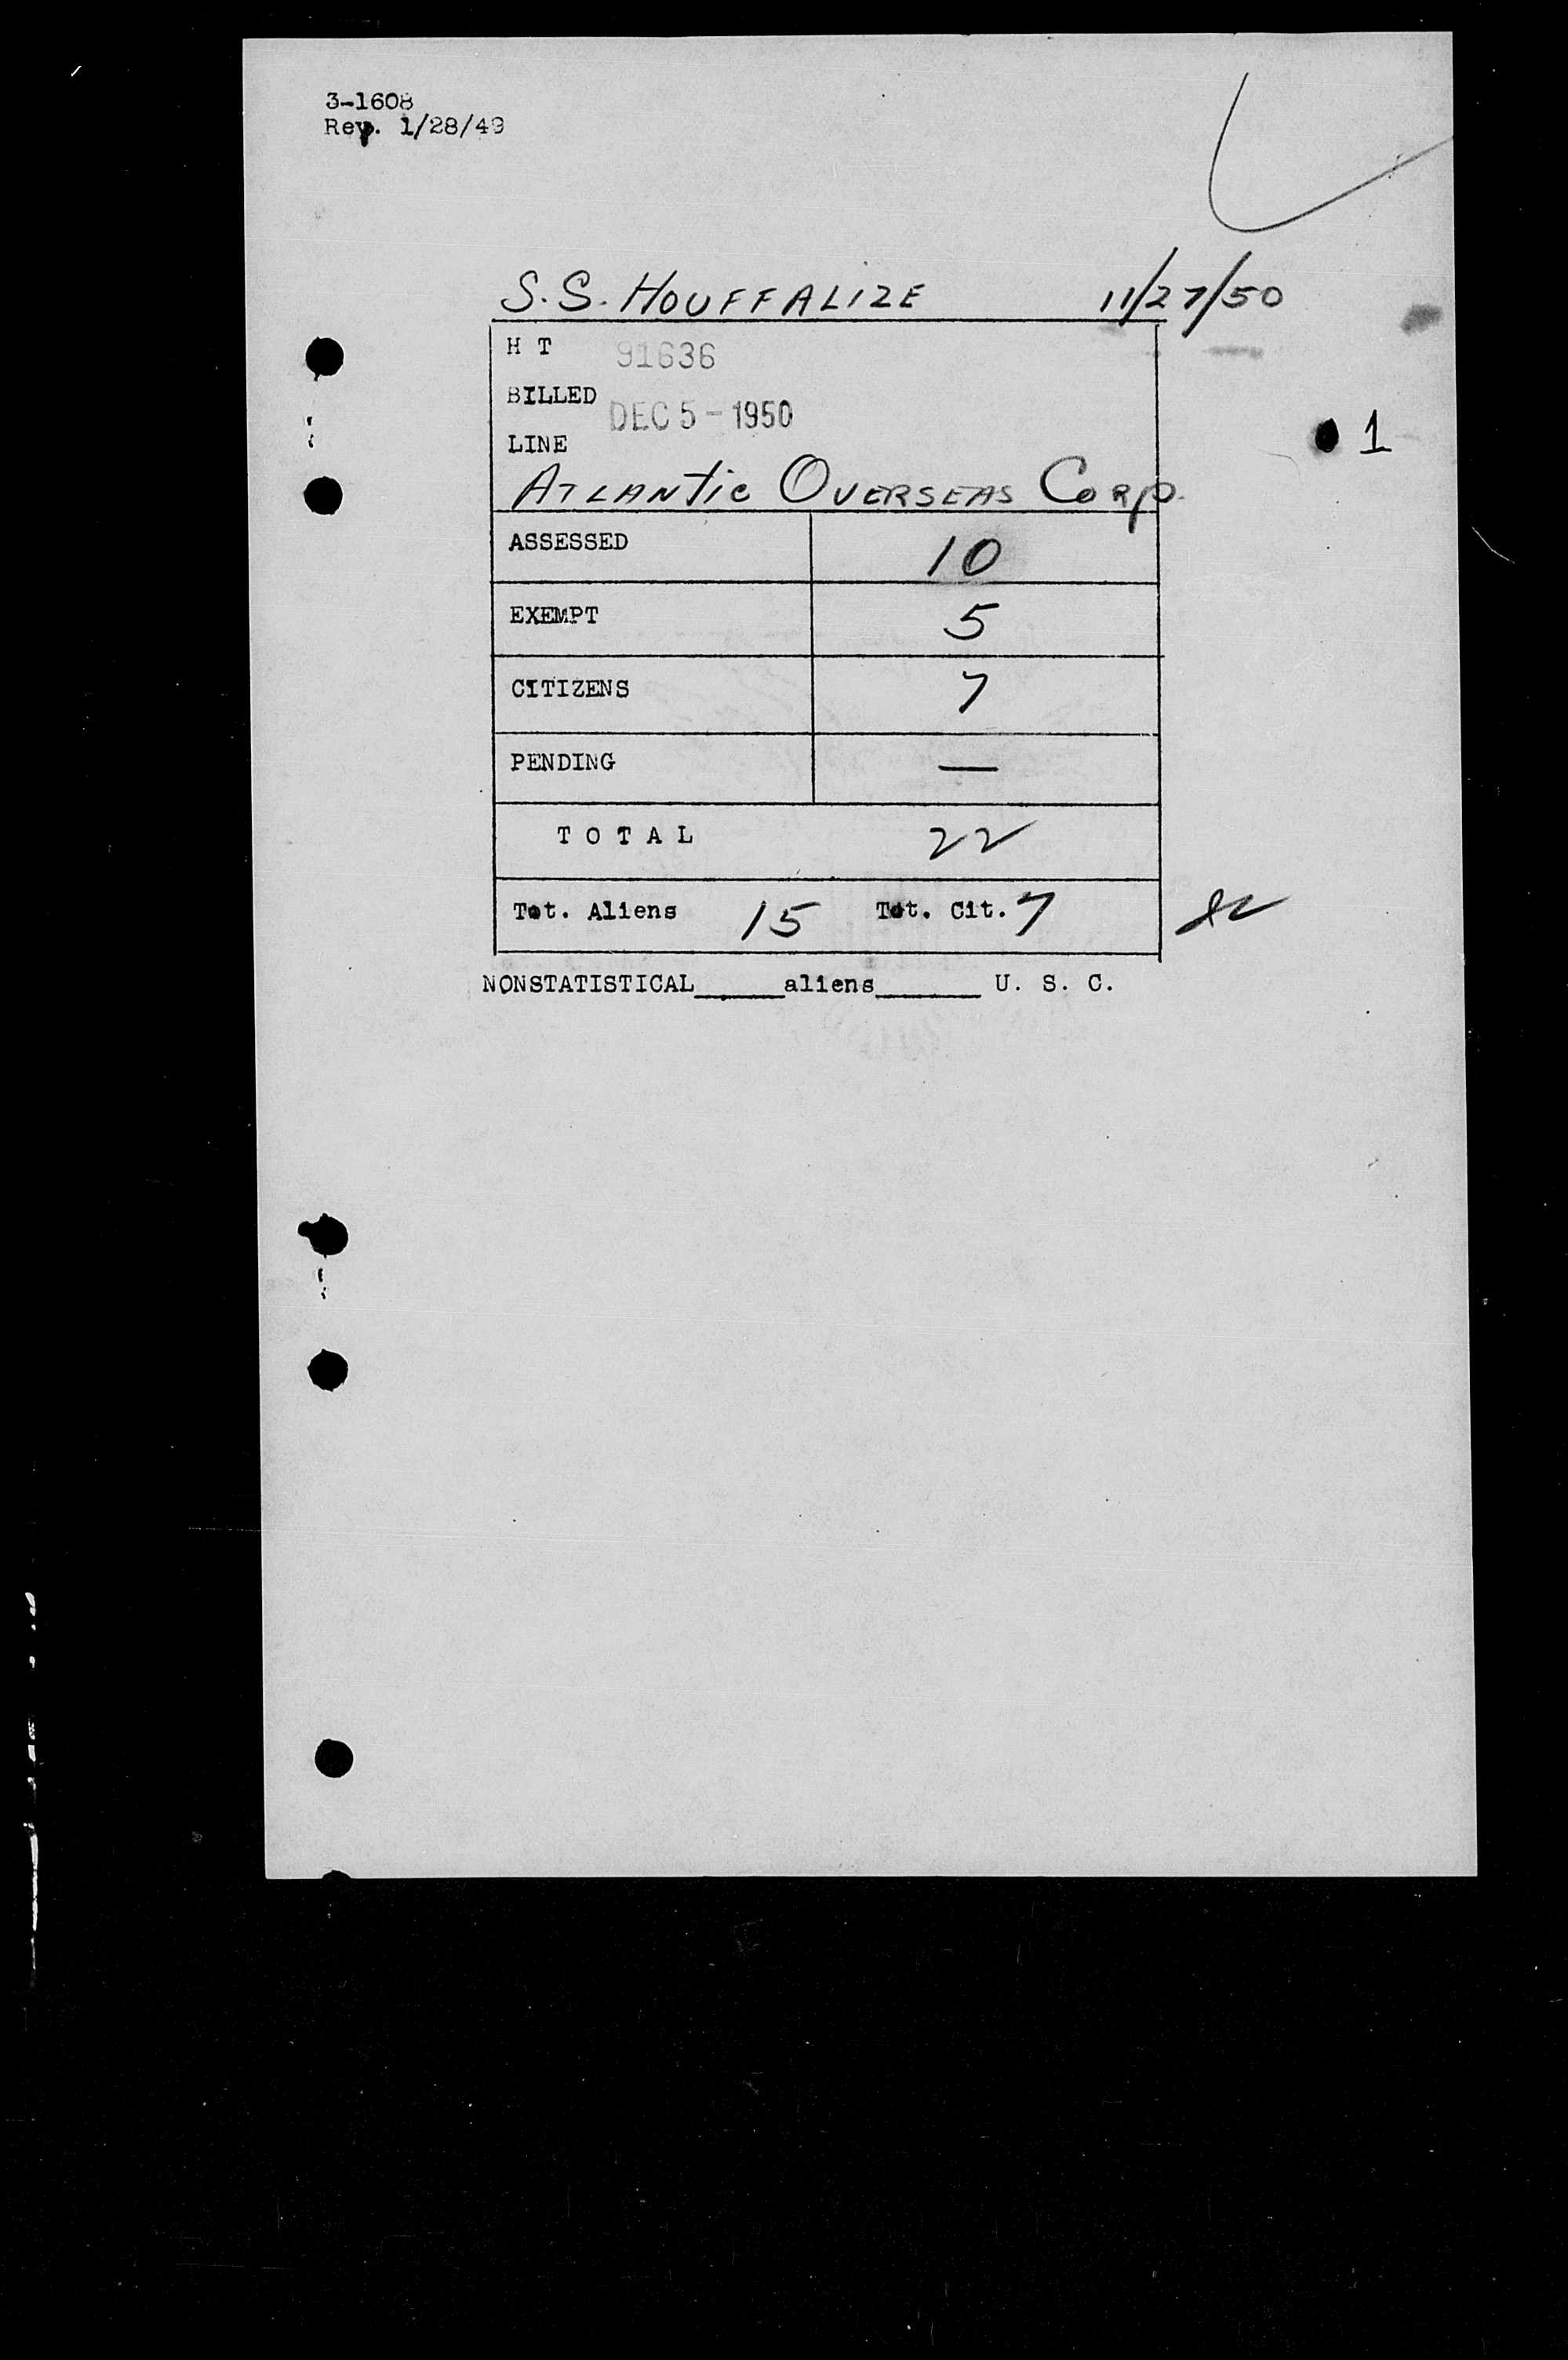 3-1608
Rev. 1/28/49
S.S. HOUFFALIZE 11/27/50
H T 91636
BILLED DEC 5 - 1950
LINE
ATLANTIC OVERSEAS CORP.
1
ASSESSED 10
EXEMPT 5
CITIZENS 7
PENDING —
T O T A L 22
Tot. Aliens 15 Tot. Cit. 7
NONSTATISTICAL______aliens_______ U. S. C.